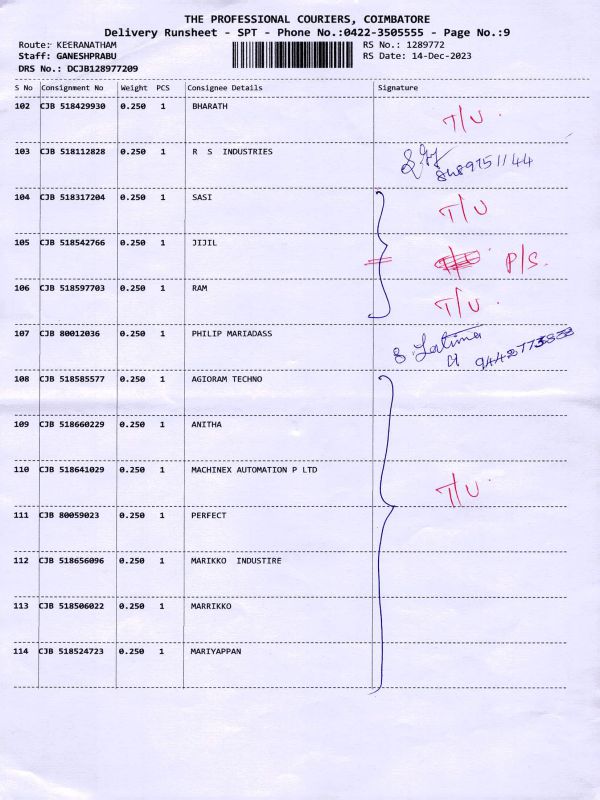 THE PROFESSIONAL COURIERS, COIMBATORE
Delivery Runsheet - SPT - Phone No.:0422-3505555 - Page No.:9
Route: KEERANATHAM RS No.: 1289772
Staff: GANESHPRABU RS Date: 14-Dec-2023
DRS No.: DCJB128977209
S No Consignment No Weight PCS Consignee Details Signature
102 CJB 518429930 0.250 1 BHARATH T/U.
103 CJB 518112828 0.250 1 R S INDUSTRIES 8489751144
104 CJB 518317204 0.250 1 SASI T/U
105 CJB 518542766 0.250 1 JIJIL P/S.
106 CJB 518597703 0.250 1 RAM T/U.
107 CJB 80012036 0.250 1 PHILIP MARIADASS
108 CJB 518585577 0.250 1 AGIORAM TECHNO
109 CJB 518660229 0.250 1 ANITHA
110 CJB 518641029 0.250 1 MACHINEX AUTOMATION P LTD T/U.
111 CJB 80059023 0.250 1 PERFECT
112 CJB 518656096 0.250 1 MARIKKO INDUSTIRE
113 CJB 518506022 0.250 1 MARRIKKO
114 CJB 518524723 0.250 1 MARIYAPPAN